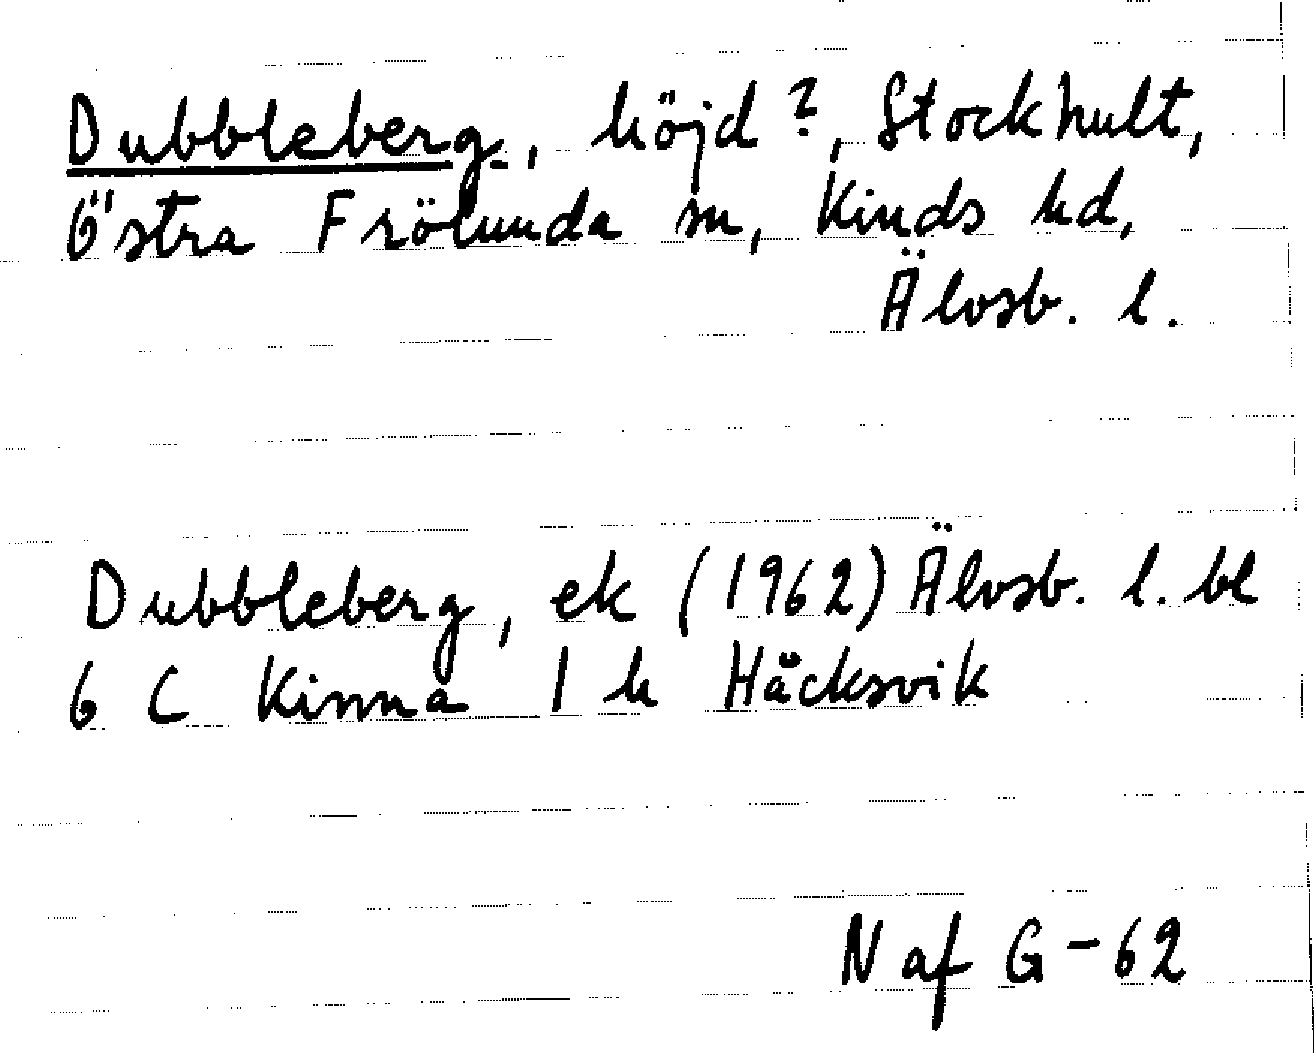 Dubbleberg, höjd?, Stockhult,
Östra Frölunda sn, Kinds hd,
Älvsb. l.
Dubbleberg, ek (1962) Älvsb. l. bl
6 C Kinna 1 h Håcksvik
N af G-62